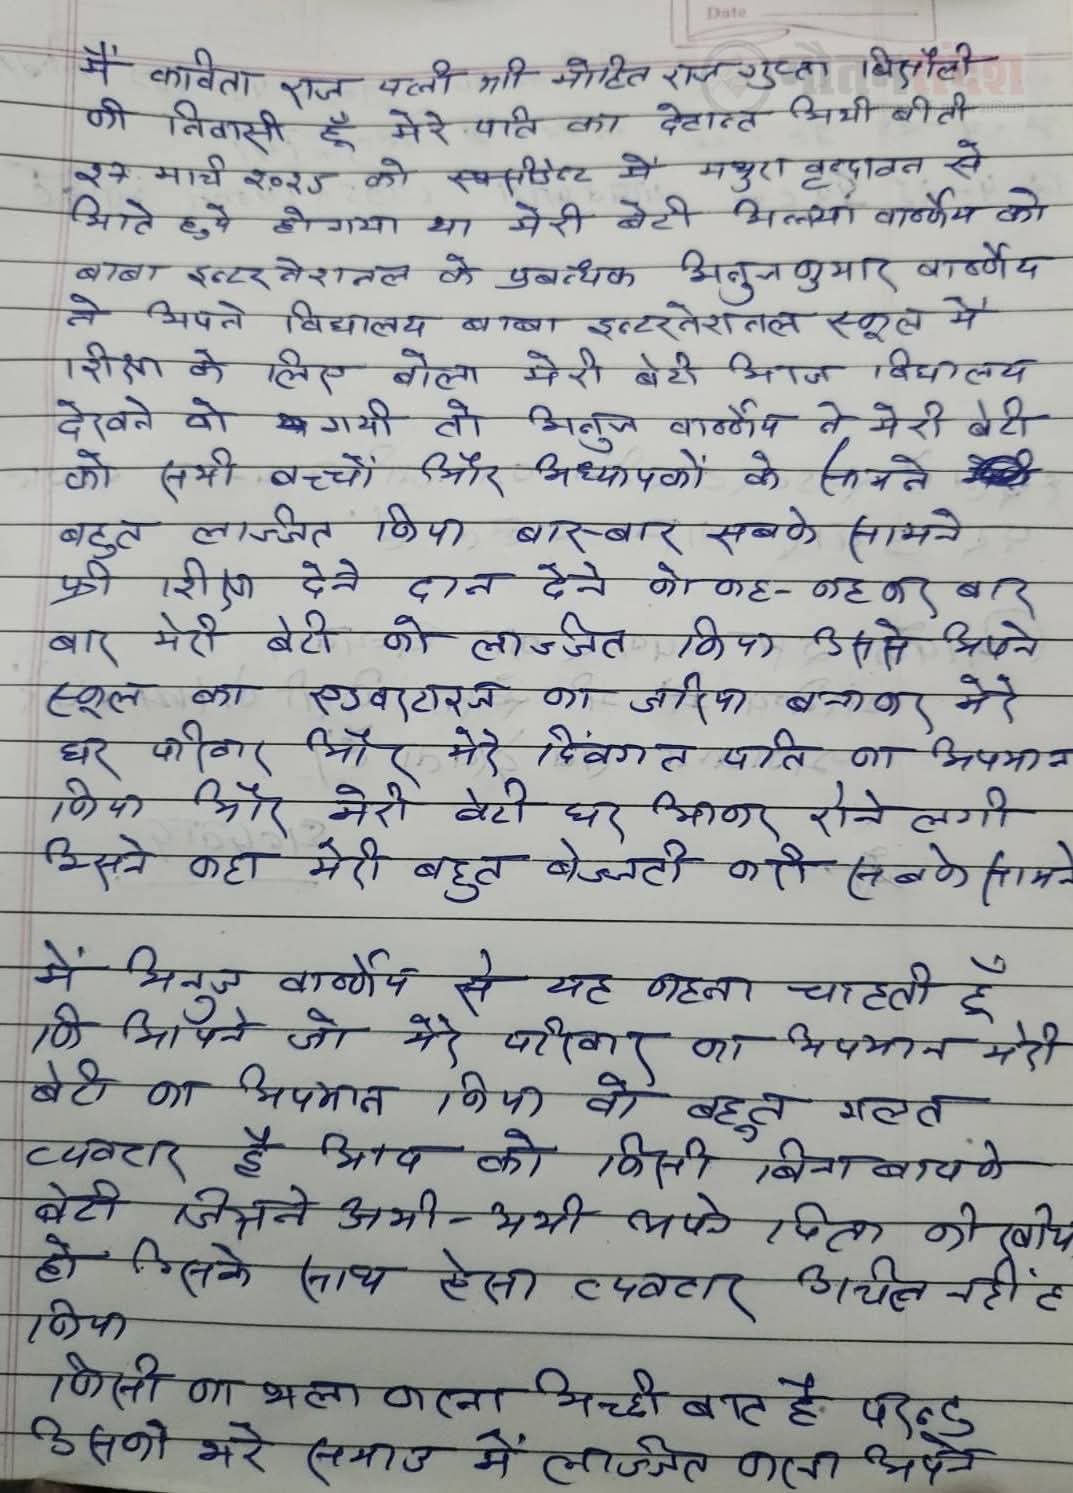 Date
मैं कविता राज पत्नी श्री मोहित राज गुप्ता बिसौली
की निवासी हूँ मेरे पति का देहान्त अभी बीती
27 मार्च 2025 को एक्सीडेन्ट में मथुरा वृन्दावन से
आते हुये होगया था मेरी बेटी वार्ष्णेय को
बाबा इन्टरनेशनल के प्रबन्धक अनुज कुमार वार्ष्णेय
ने अपने विद्यालय बाबा इन्टरनेशनल स्कूल में
शिक्षा के लिए बोला मेरी बेटी आज विद्यालय
देखने को गयी तो अनुज वार्ष्णेय ने मेरी बेटी
को सभी बच्चों और अध्यापकों के सामने
बहुत लज्जित किया बार-बार सबके सामने
फ्री शिक्षा देने दान देने को कह-कह कर बार
बार मेरी बेटी को लज्जित किया उसने अपने
स्कूल का एडवरटाइज का जरिया बनाकर मेरे
घर परिवार और मेरे दिवंगत पति का अपमान
किया और मेरी बेटी घर आकर रोने लगी
उसने कहा मेरी बहुत बेज्जती करी सबके सामने
में अनुज वार्ष्णेय से यह कहना चाहती हूँ
कि आपने जो मेरे परिवार का अपमान मेरी
बेटी का अपमान किया वो बहुत गलत
व्यवहार है आप को किसी बिना बाप के
बेटी जिसने अभी-अभी अपने पिता को खोया
हो उसके साथ ऐसा व्यवहार उचित नहीं है
किया
किसी का भला करना अच्छी बात है परन्तु
उसको भरे समाज में लज्जित करना अपने